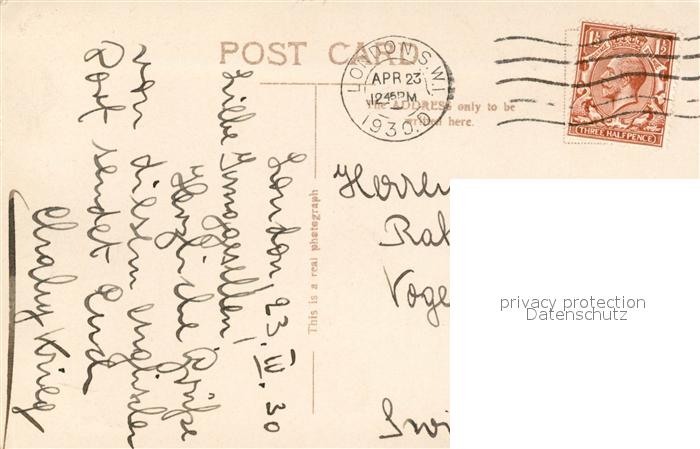 POST CARD
LONDON. S.W.1.
APR 23
12.45 PM
1930.
The ADDRESS only to be
written here.
1½ 1½
THREE HALFPENCE
This is a real photograph
London, 23. IV. 30
Liebe Junggesellen!
Herzliche Grüsse
von diesem englischen
Boot sendet Euch
Charly Krieg
Herren
Voge
privacy protection
Datenschutz